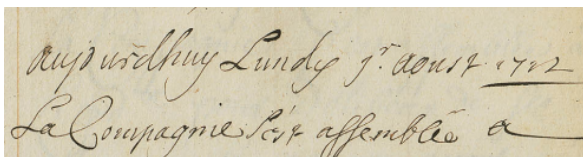 aujourdhuy Lundy jr. aoust 1712
La Compagnie s'est assemblée a